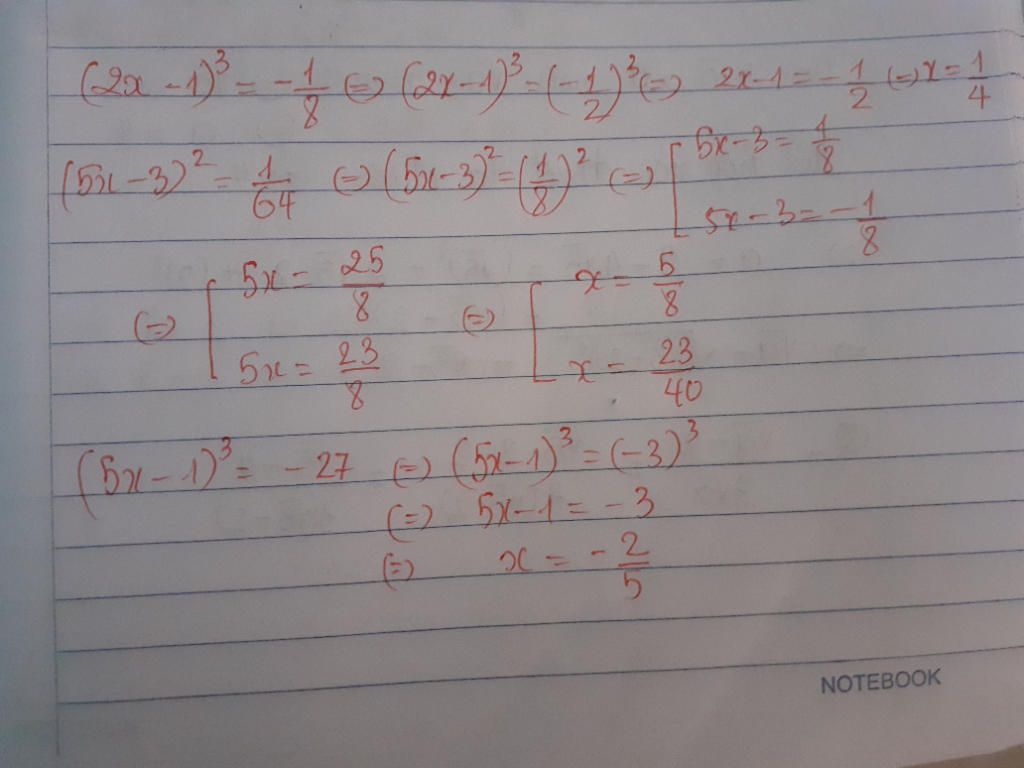 (2x - 1)³ = -1/8 (=) (2x-1)³ = (-1/2)³ (=) 2x-1 = -1/2 (=) x = 1/4
(5x - 3)² = 1/64 (=) (5x-3)² = (1/8)² (=) [ 5x-3 = 1/8
5x - 3 = -1/8
(=) [ 5x = 25/8 (=) [ x = 5/8
5x = 23/8 x = 23/40
(5x-1)³ = -27 (=) (5x-1)³ = (-3)³
(=) 5x-1 = -3
(=) x = -2/5
NOTEBOOK